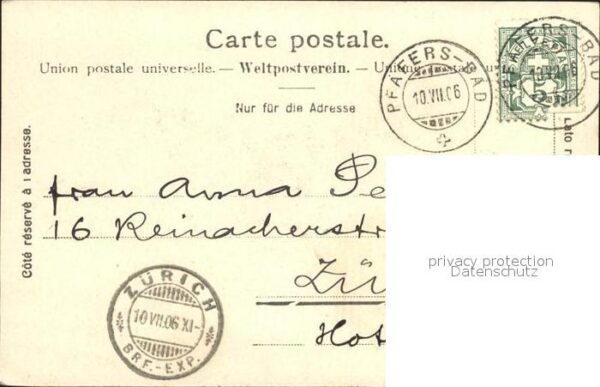 Carte postale.
Union postale universelle. — Weltpostverein. — Union postale un
Nur für die Adresse
Côté réservé à l'adresse.
Lato r
PFÆFERS-BAD
10.VII.06
PFÆFERS-BAD
10.VII.06
Frau Anna Pe
16 Reinacherst
Zü
Hot
ZÜRICH
10 VII.06 XI-
BRF.-EXP.
privacy protection
Datenschutz